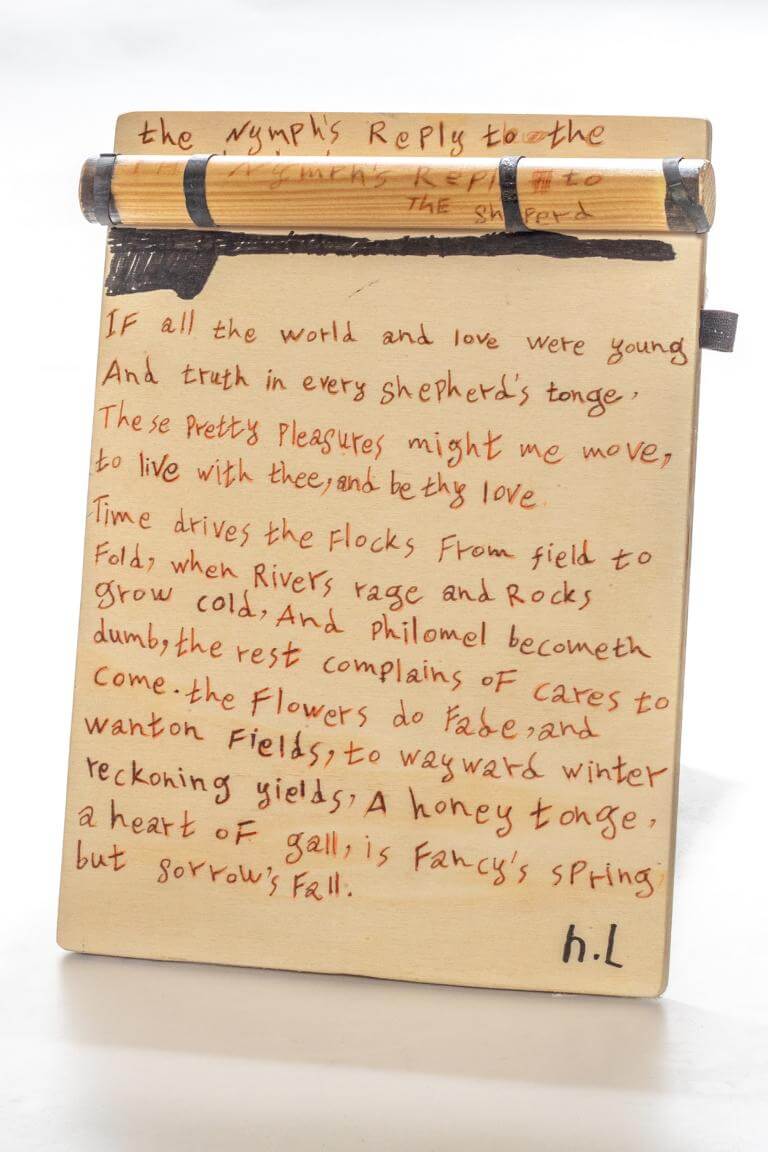 the Nymph's Reply to the
THE Nymph's Repl to
THE Shepherd
IF all the world and love were young
And truth in every shepherd's tonge,
These Pretty Pleasures might me move,
to live with thee, and be thy love.
Time drives the Flocks From field to
Fold, when Rivers rage and Rocks
grow cold, And Philomel becometh
dumb, the rest complains oF cares to
come. the Flowers do Fade, and
wanton Fields, to wayward winter
reckoning yields, A honey tonge,
a heart oF gall, is Fancy's spring
but sorrow's Fall.
h.L